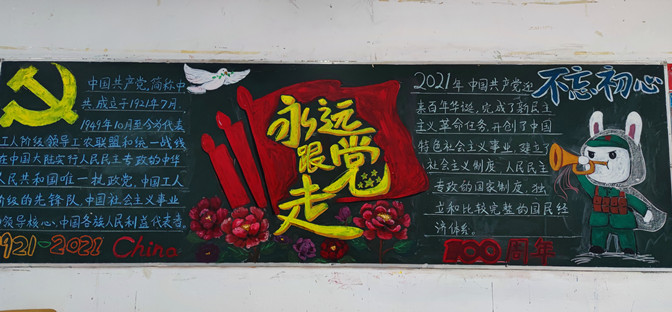 中国共产党,简称中
共,成立于1921年7月,
1949年10月至今为代表
工人阶级领导工农联盟和统一战线
在中国大陆实行人民民主专政的中华
人民共和国唯一执政党,中国工人
阶级的先锋队,中国社会主义事业
的领导核心,中国各族人民利益代表者,
1921-2021 China
永远
跟党
走
2021年中国共产党迎
来百年华诞,完成了新民主
主义革命任务,开创了中国
特色社会主义事业,建立了
社会主义制度,人民民主
专政的国家制度,独
立和比较完整的国民经
济体系.
100周年
不忘初心